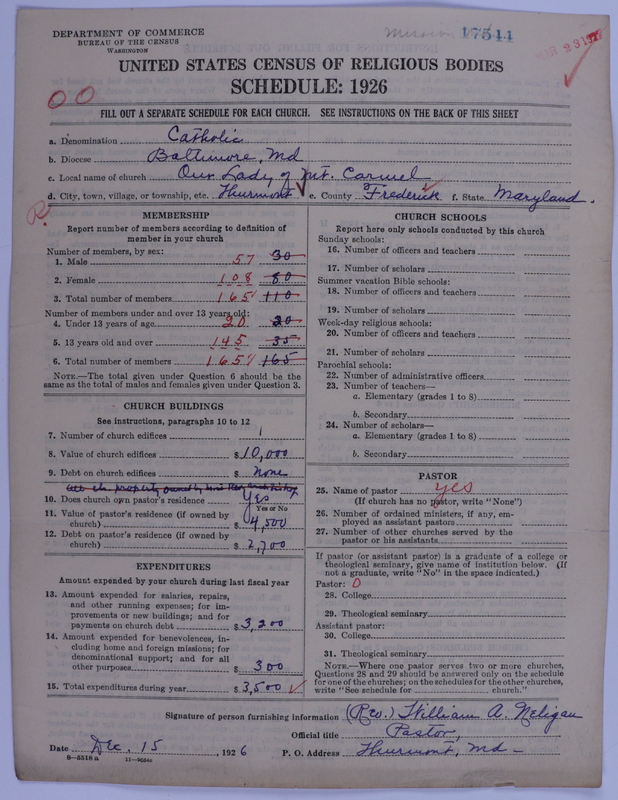 DEPARTMENT OF COMMERCE
BUREAU OF THE CENSUS
WASHINGTON
Mission 17511
MAR 23 1927
UNITED STATES CENSUS OF RELIGIOUS BODIES
SCHEDULE: 1926
OO
FILL OUT A SEPARATE SCHEDULE FOR EACH CHURCH. SEE INSTRUCTIONS ON THE BACK OF THIS SHEET
a. Denomination Catholic
b. Diocese Baltimore, Md
c. Local name of church Our Lady of Mt. Carmel
d. City, town, village, or township, etc. Thurmont e. County Frederick f. State Maryland.
R
MEMBERSHIP
Report number of members according to definition of
member in your church
Number of members, by sex:
1. Male 57 30
2. Female 108 80
3. Total number of members 165 110
Number of members under and over 13 years old:
4. Under 13 years of age 20 20
5. 13 years old and over 145 35
6. Total number of members 165 165
NOTE.—The total given under Question 6 should be
same as the total of males and females given under Question 3.
CHURCH BUILDINGS
See instructions, paragraphs 10 to 12
7. Number of church edifices 1
8. Value of church edifices $10,000
9. Debt on church edifices $ none
10. Does church own pastor's residence Yes
Yes or No
11. Value of pastor's residence (if owned by
church) $ 4,500
12. Debt on pastor's residence (if owned by
church) $ 2,700
EXPENDITURES
Amount expended by your church during last fiscal year
13. Amount expended for salaries, repairs,
and other running expenses; for im-
provements or new buildings; and for
payments on church debt $3,200
14. Amount expended for benevolences, in-
cluding home and foreign missions; for
denominational support; and for all
other purposes $ 300
15. Total expenditures during year $3,500
CHURCH SCHOOLS
Report here only schools conducted by this church
Sunday schools:
16. Number of officers and teachers
17. Number of scholars
Summer vacation Bible schools:
18. Number of officers and teachers
19. Number of scholars
Week-day religious schools:
20. Number of officers and teachers
21. Number of scholars
Parochial schools:
22. Number of administrative officers
23. Number of teachers—
a. Elementary (grades 1 to 8)
b. Secondary
24. Number of scholars—
a. Elementary (grades 1 to 8)
b. Secondary
PASTOR
25. Name of pastor yes
(If church has no pastor, write "None")
26. Number of ordained ministers, if any, em-
ployed as assistant pastors
27. Number of other churches served by the
pastor or his assistants
If pastor (or assistant pastor) is a graduate of a college or
theological seminary, give name of institution below. (If
not a graduate, write "No" in the space indicated.)
Pastor: 0
28. College
29. Theological seminary
Assistant pastor:
30. College
31. Theological seminary
NOTE.—Where one pastor serves two or more churches,
Questions 28 and 29 should be answered only on the schedule
for one of the churches; on the schedules for the other churches,
write "See schedule for church."
Signature of person furnishing information (Rev.) William A. Neligan
Official title Pastor,
Date Dec. 15, 1926 P. O. Address Thurmont, Md -
8—5518 a 11—9554c